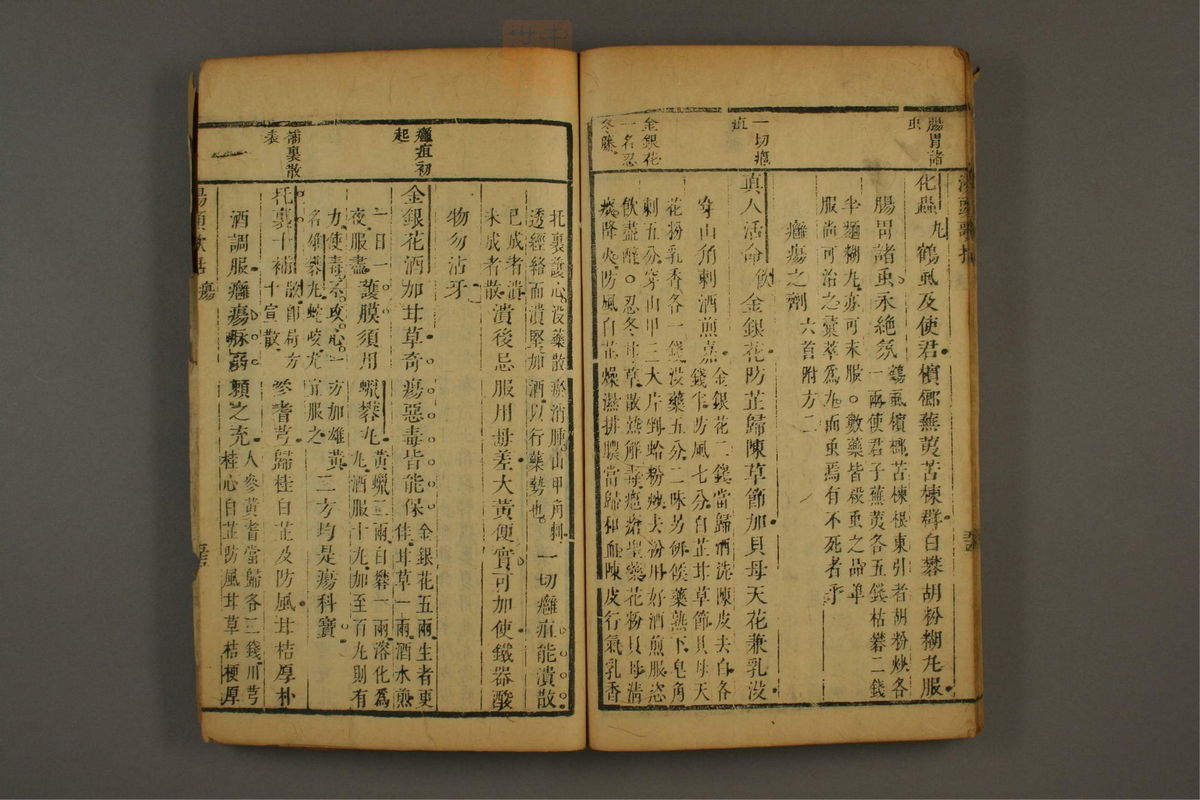 湯頭歌括
腸胃諸
虫
化蟲丸鶴虱及使君檳榔蕪荑苦楝群白礬胡粉糊丸服
腸胃諸虫永絕氛
鶴虱檳榔苦楝根東引者胡粉炒各
一兩使君子蕪荑各五錢枯礬二錢
半麵糊丸亦可末服○數藥皆殺虫之品單
服尚可治之彙萃為丸而虫焉有不死者乎
癰瘍之劑 六首附方二
一切癰
疽
真人活命飲金銀花防芷歸陳草節加貝母天花兼乳没
穿山角刺酒煎嘉
金銀花二錢當歸酒洗陳皮去白各
錢半防風七分白芷甘草節貝母天
金銀花
一名忍
冬藤
花粉乳香各一錢没藥五分二味另研候藥熟下皂角
刺五分穿山甲三大片剉蛤粉炒去粉用好酒煎服恣
飲盡醉○忍冬甘草散熱解毒癰瘡聖藥花粉貝母清
痰降火防風白芷燥濕排膿當歸和血陳皮行氣乳香
托裏護心没藥散瘀消腫山甲角刺
透經絡而潰堅加酒以行藥勢也
一切癰疽能潰散
已成者潰
未成者散
潰後忌服用毋差大黃便實可加使鐵器酸
物勿沾牙
癰疽初
起
金銀花酒加甘草奇瘍惡毒皆能保
金銀花五兩生者更
佳甘草一兩酒水煎
一日一
夜服盡
護膜須用蠟礬丸
黃蠟二兩白礬一兩溶化為
丸酒服十丸加至百丸則有
力使毒不攻心一方加雄黃
名雄礬丸蛇咬尤宜服之
二方均是瘍科寶
補裏散
表
托裏十補散
即局方
十宣散
參耆芎歸桂白芷及防風甘桔厚朴
酒調服癰瘍脉弱賴之充
人參黃耆當歸各二錢川芎
桂心白芷防風甘草桔梗厚
湯頭歌括 瘍